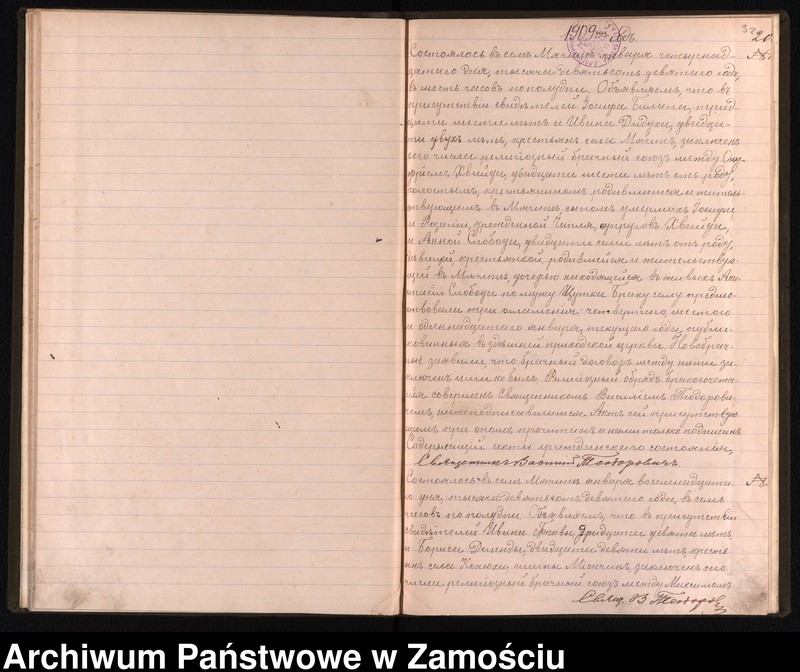 1909ый годъ.
20
Состоялось въ селѣ Мячинѣ января четырнад-
цатаго дня, тысяча девятьсотъ девятаго года,
въ шесть часовъ пополудни. Объявляемъ, что въ
присутствіи свидѣтелей Іосифа тридь-
цати шести лѣтъ и Ивана двадца-
ти двухъ лѣтъ, крестьянъ села Мячинъ, заключенъ
сего числа религіозный брачный союзъ между Ону-
фріемъ двадцати шести лѣтъ отъ роду,
холостымъ, крестьяниномъ родившимся и житель-
ствующимъ въ Мячинѣ, сыномъ умершихъ Іосифа
и урожденной супруговъ
и Анной Слободы, двадцати семи лѣтъ отъ роду,
крестьянкой, родившейся и жительствую-
щей въ Мячинѣ, дочерью находящейся въ живыхъ
Слободы по мужу Браку сему предше-
ствовали три оглашенія: четвертаго, шестого
и одиннадцатаго января, текущаго года, публи-
кованныя въ здѣшней приходской церкви. Новобрач-
ные заявили, что брачный договоръ между ними за-
ключенъ не былъ. Религіозный обрядъ бракосочета-
нія совершенъ Священникомъ Василіемъ Теодорови-
чемъ, нижеподписавшимся. Актъ сей присутствую-
щимъ при ономъ прочитанъ и нами только подписанъ.
Содержащій акты гражданскаго состоянія,
Священникъ Василій Теодоровичъ.
Состоялось въ селѣ Мячинѣ января восемнадцата-
го дня, тысяча девятьсотъ девятаго года, въ семь
часовъ пополудни. Объявляемъ, что въ присутствіи
свидѣтелей Ивана тридцати девяти лѣтъ
и Бориса двадцати девяти лѣтъ, кресть-
янъ села заключенъ сего
числа религіозный брачный союзъ между Максимомъ
Свящ. В. Теодорович
Archiwum Państwowe w Zamościu